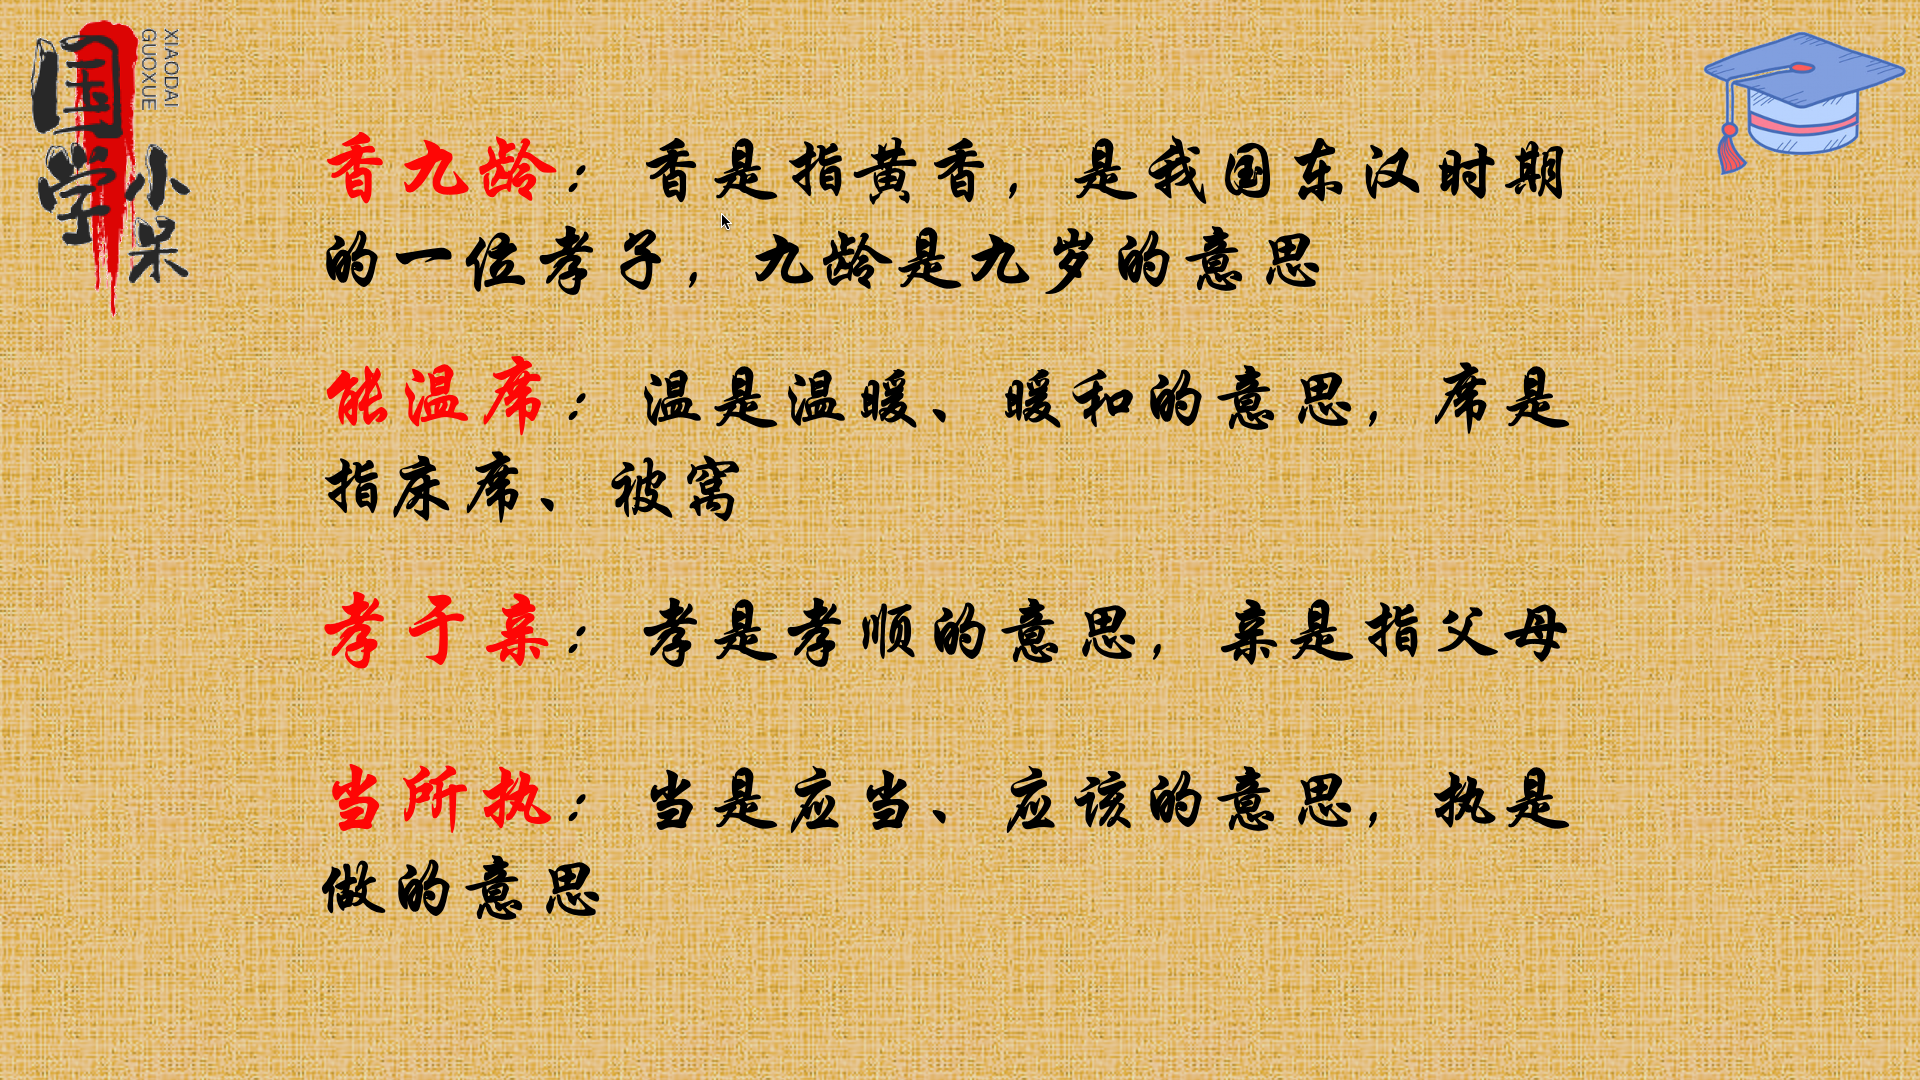 国学小呆
XIAODAI
GUOXUE
香九龄：香是指黄香，是我国东汉时期
的一位孝子，九龄是九岁的意思
能温席：温是温暖、暖和的意思，席是
指床席、被窝
孝于亲：孝是孝顺的意思，亲是指父母
当所执：当是应当、应该的意思，执是
做的意思